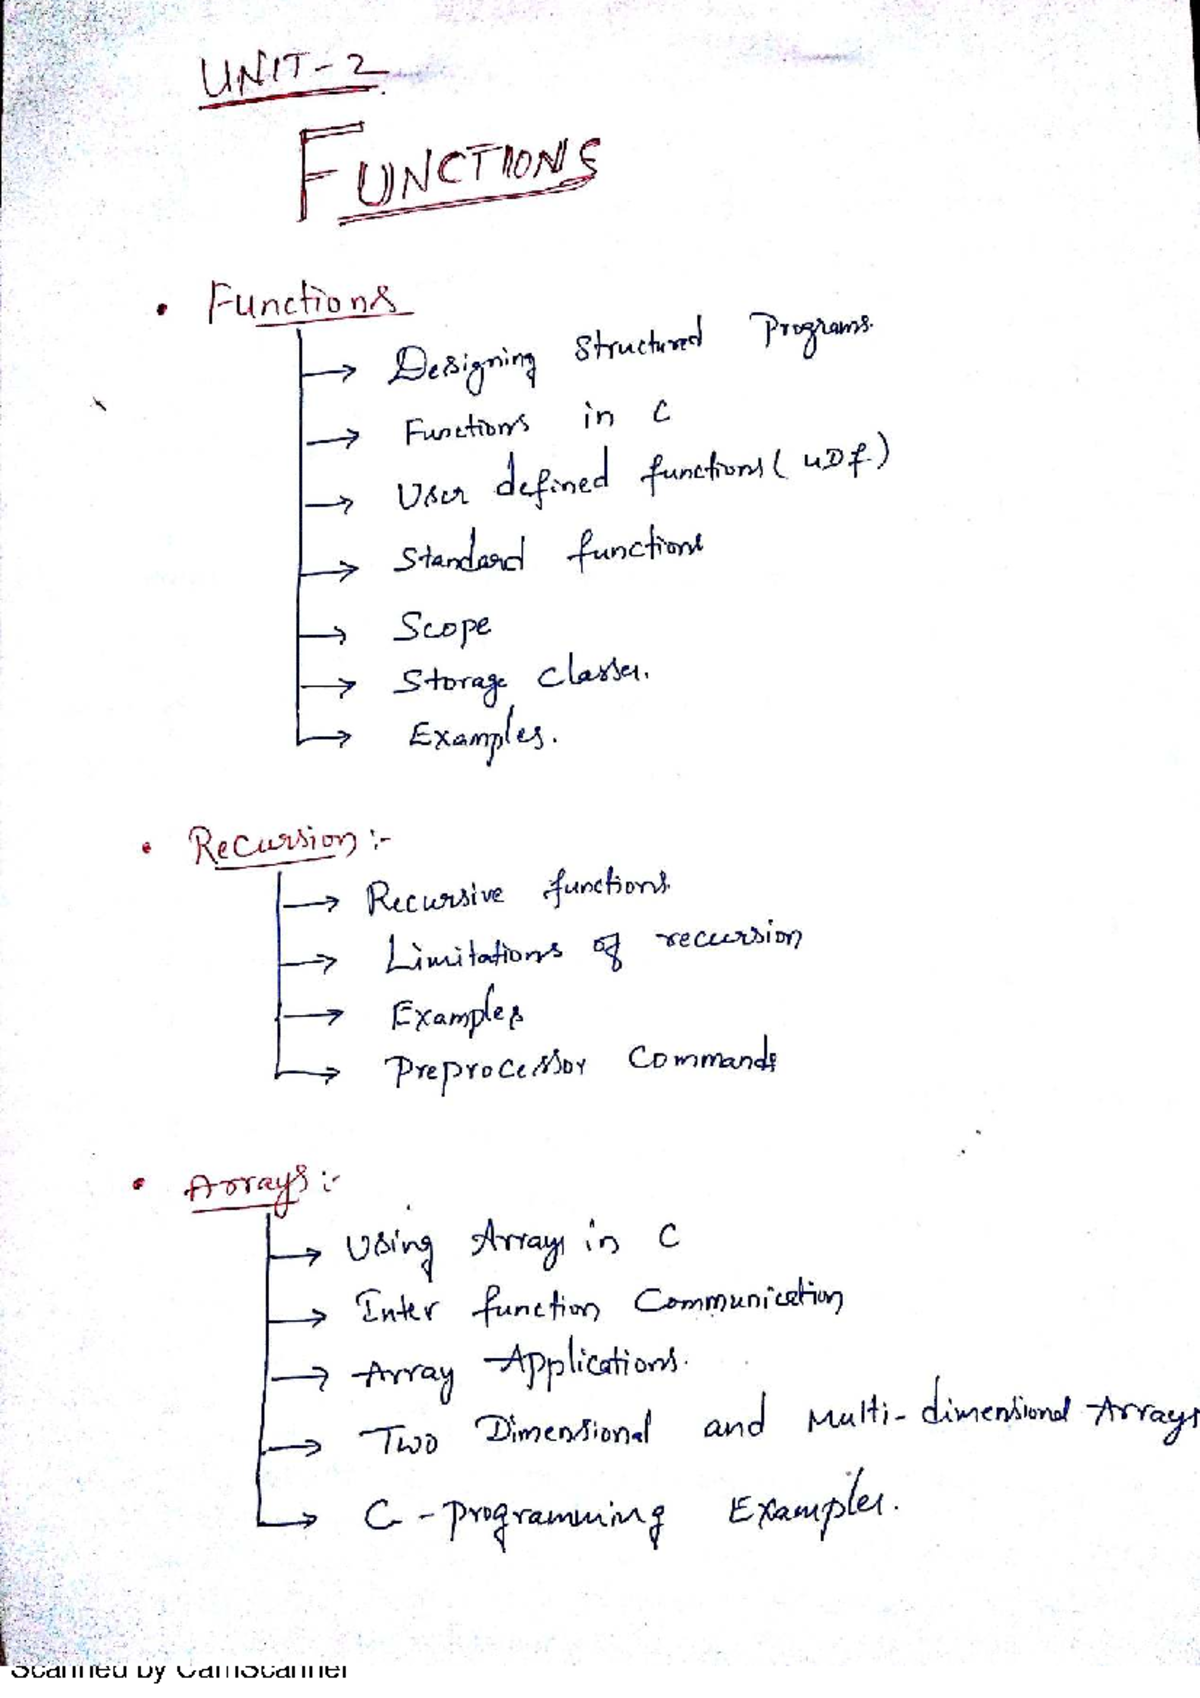 UNIT-2
FUNCTIONS
• Functions
→ Designing Structured Programs.
→ Functions in C
→ User defined functions (UDf.)
→ Standard functions
→ Scope
→ Storage Classes.
→ Examples.
• Recursion :-
→ Recursive functions.
→ Limitations of recursion
→ Examples
→ Preprocessor Commands
• Arrays :-
→ Using Arrays in C
→ Inter function Communication
→ Array Applications.
→ Two Dimensional and Multi-dimensional Arrays
→ C-programming Examples.
Scanned by CamScanner